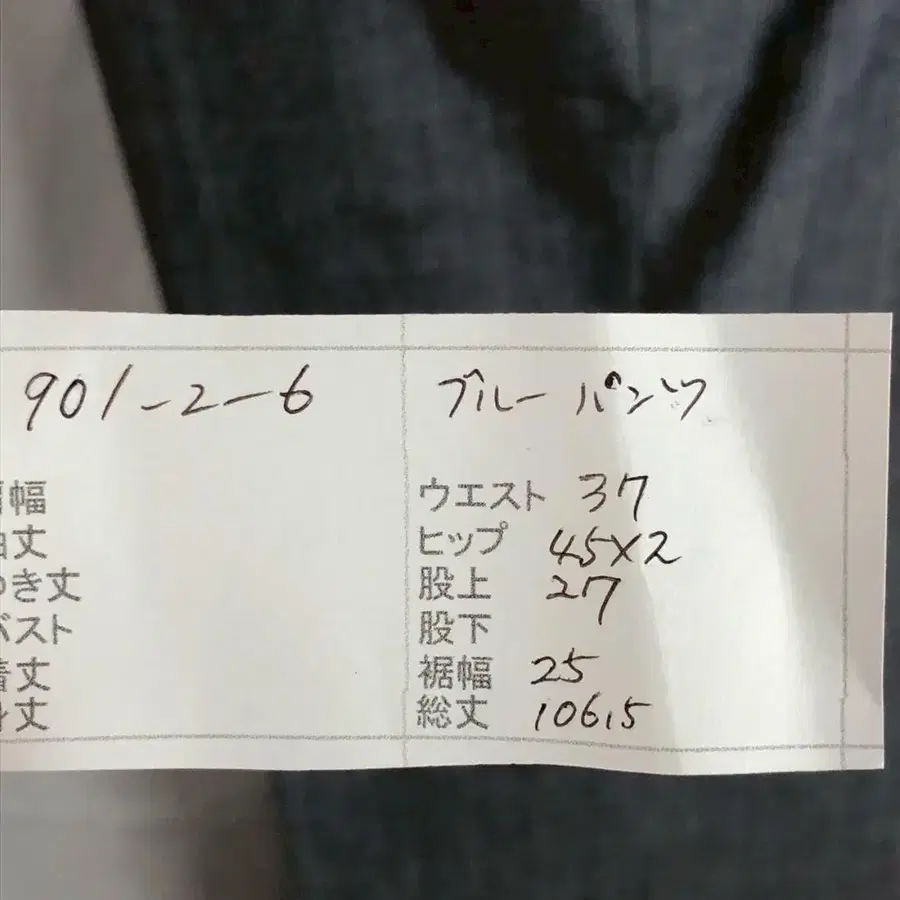 901-2-6 ブルーパンツ
肩幅
袖丈
ゆき丈
バスト
着丈
身丈
ウエスト 37
ヒップ 45×2
股上 27
股下
裾幅 25
総丈 106.5